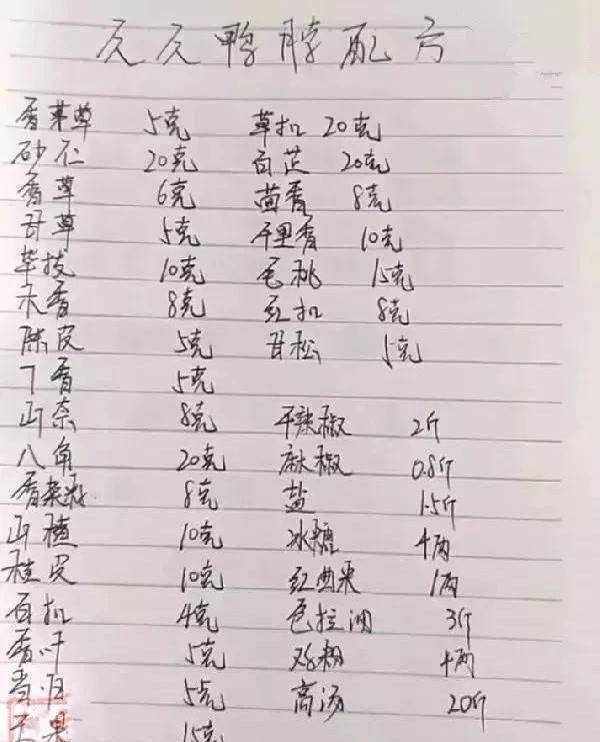 久久鸭脖配方
香茅草 5克 草扣 20克
砂仁 20克 白芷 20克
香草 6克 茴香 8克
甘草 5克 千里香 10克
荜拔 10克 毛桃 15克
木香 8克 红扣 8克
陈皮 5克 甘松 5克
丁香 5克
山奈 8克 干辣椒 2斤
八角 20克 麻椒 0.8斤
香菜籽 8克 盐 1.5斤
山楂 10克 冰糖 4两
桂皮 10克 红曲米 1两
白扣 4克 色拉油 3斤
香叶 5克 鸡精 4两
当归 5克 高汤 20斤
果 15克